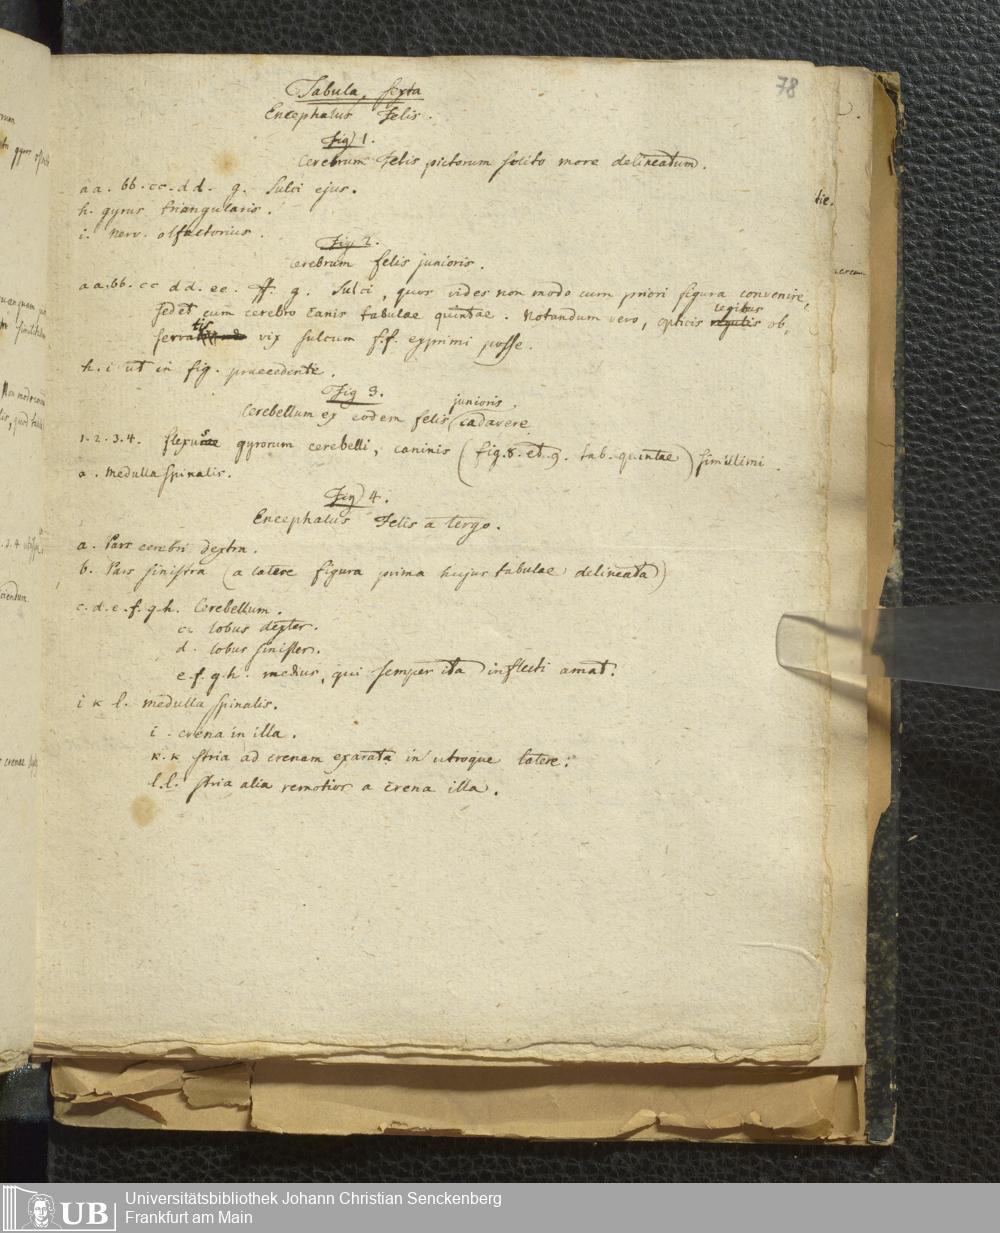 78
Tabula sexta
Encephalus Felis.
Fig 1.
Cerebrum Felis pictorum solito more delineatum.
aa. bb. cc. dd. g. Sulci ejus.
h. gyrus triangularis.
i. nerv. olfactorius.
Fig 2.
Cerebrum felis junioris.
aa. bb. cc dd. ee. ff. g. Sulci, quos vides non modo cum priori figura convenire,
sed et cum cerebro Canis tabulae quintae. Notandum vero, opticis legibus ob,
servatis vix sulcum f.f. exprimi posse.
h. i ut in fig. praecedente.
Fig 3.
Cerebellum ex eodem felis junioris cadavere.
1. 2. 3. 4. flexus gyrorum cerebelli, caninis (fig. 8. et 9. tab. quintae) simillimi.
a. Medulla spinalis.
Fig 4.
Encephalus Felis a tergo.
a. Pars cerebri dextra.
b. Pars sinistra (a latere figura prima hujus tabulae delineata)
c. d. e. f. g. h. Cerebellum.
c. lobus dexter.
d. lobus sinister.
e. f. g. h. medius, qui semper ita inflecti amat.
i k l. medulla spinalis.
i. crena in illa.
k. k stria ad crenam exarata in utroque latere.
l. l. stria alia remotior a crena illa.
UB
Universitätsbibliothek Johann Christian Senckenberg
Frankfurt am Main